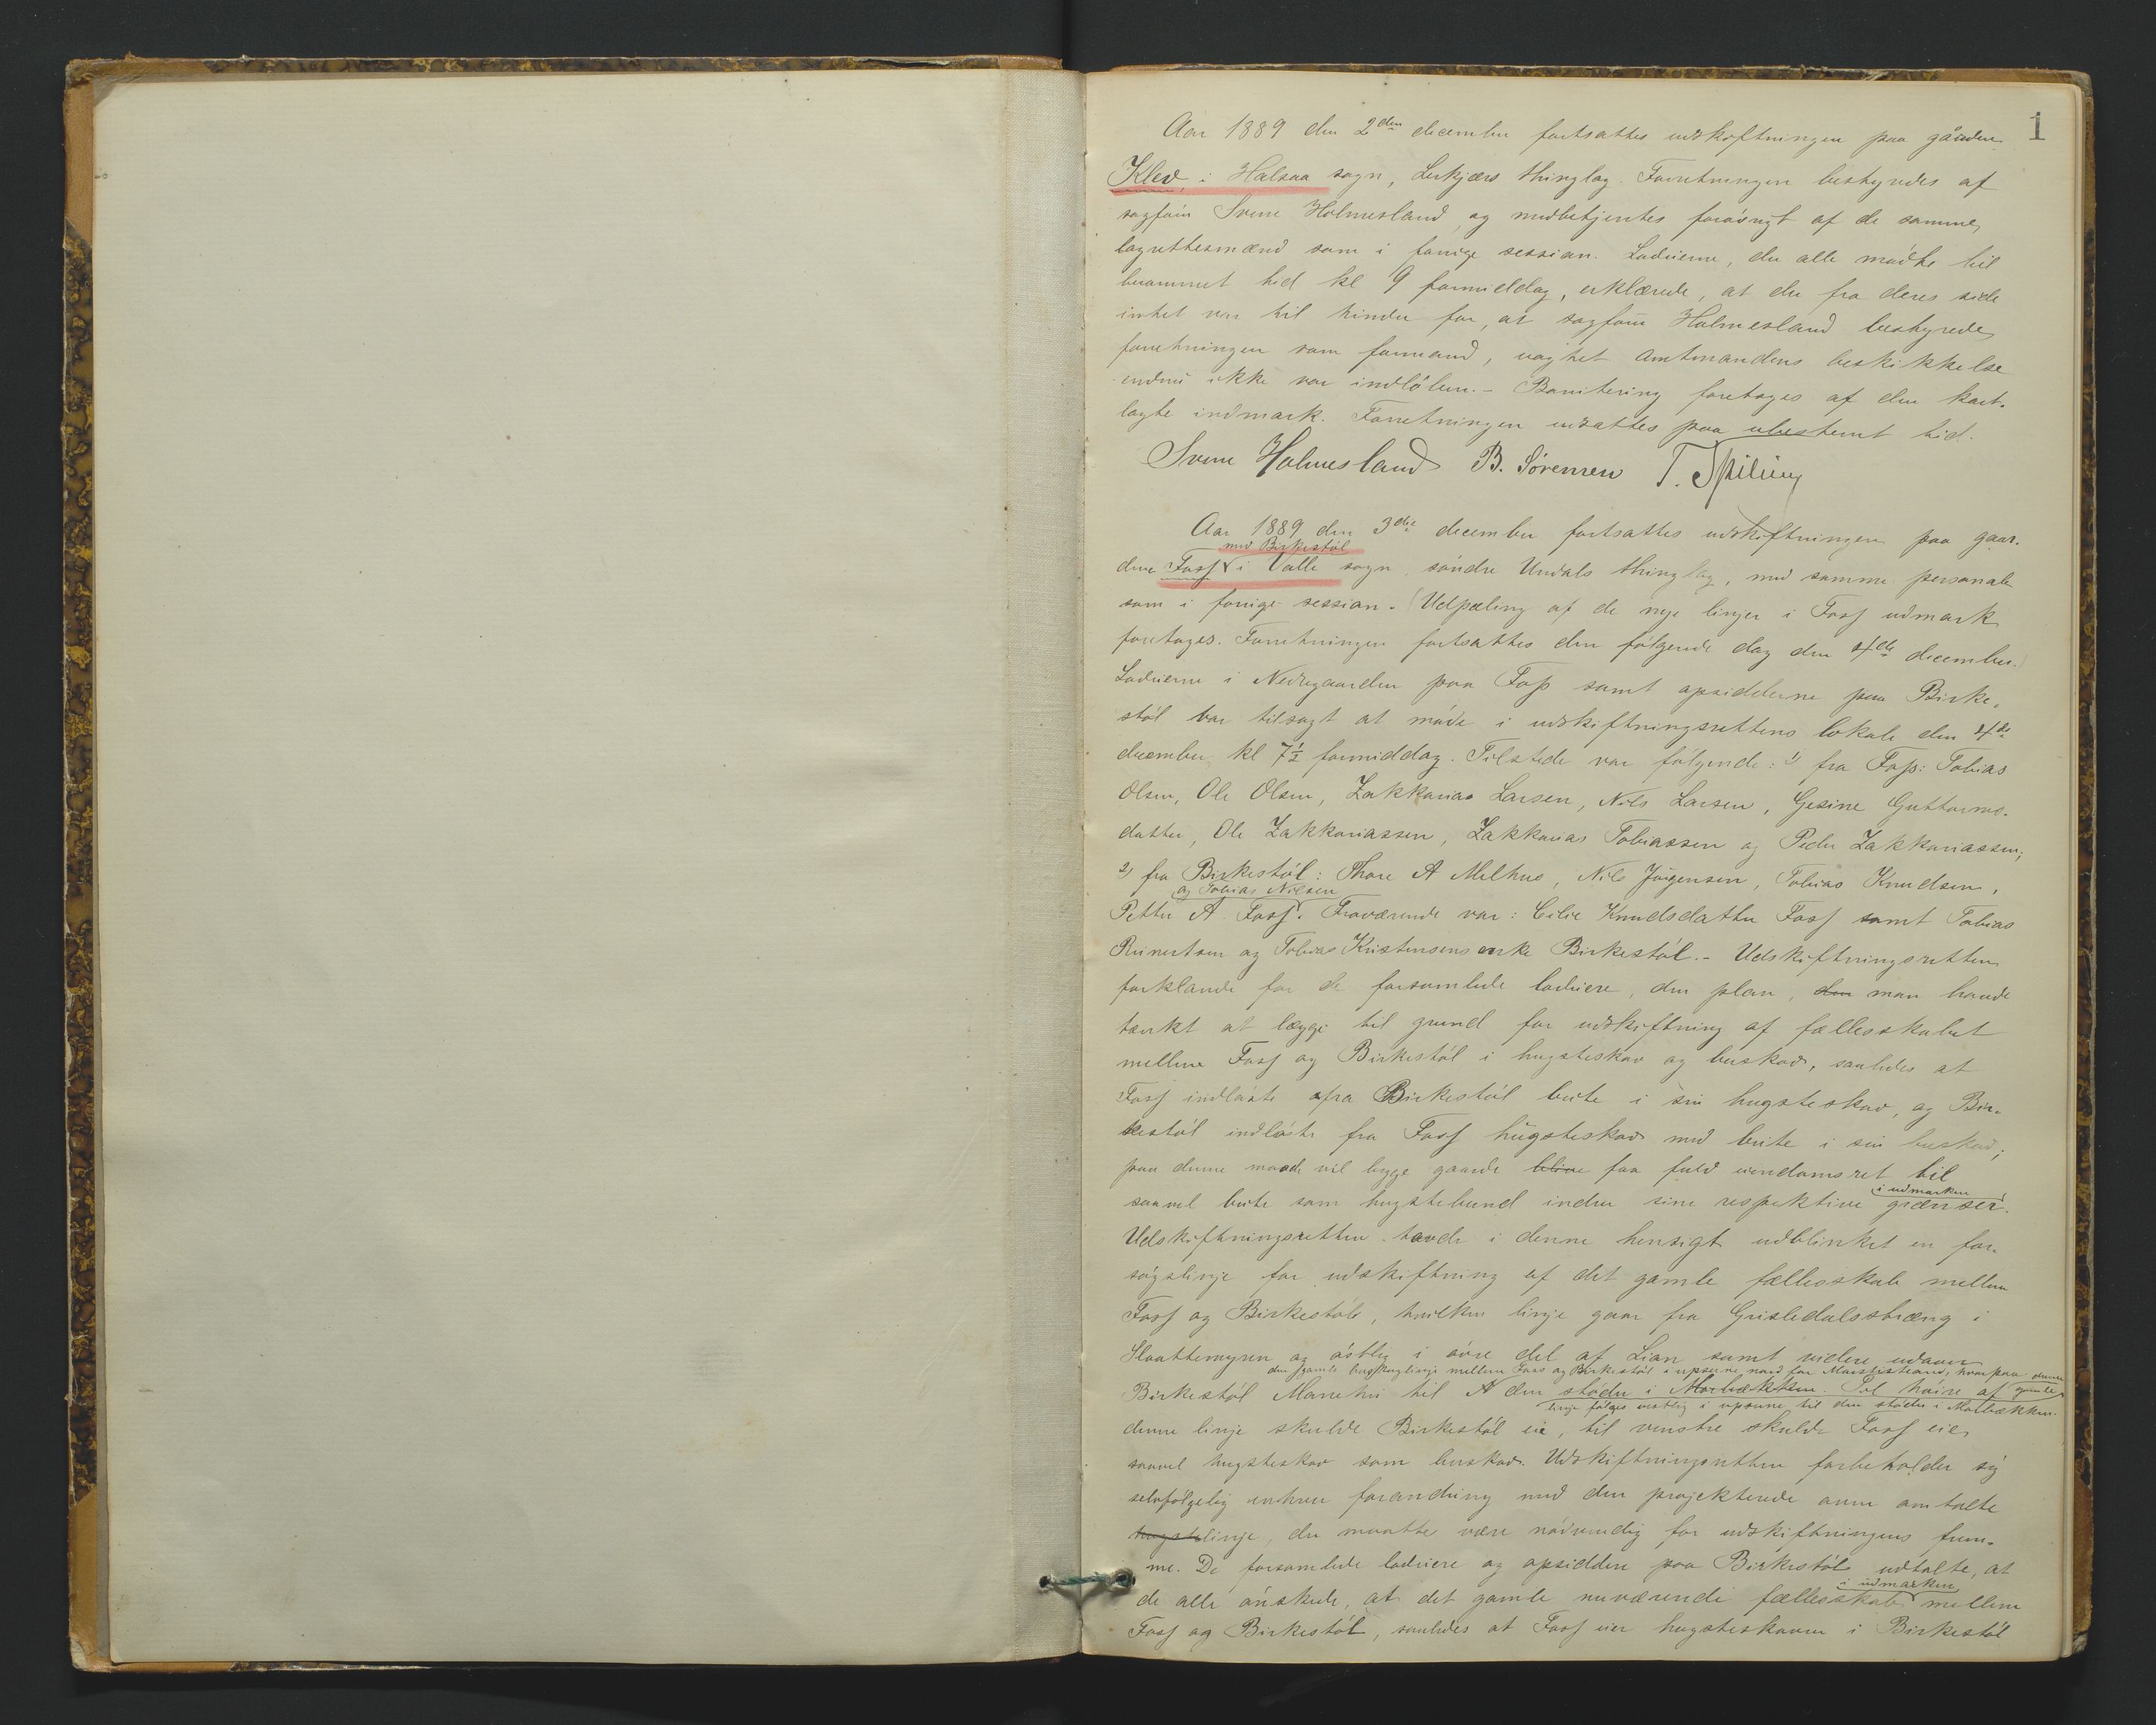 1
Aar 1889 den 2den december fortsattes udskiftningen paa gården
Klev i Halsaa sogn, Lerkjærs thinglag. Forretningen bestyredes af
sagfører Svenn Holmesland og medbetjentes forøvrigt af de samme
lagrettesmænd som i forrige session. Lodeierne, der alle mødte til
berammet tid kl 9 formiddag, erklærede, at der fra deres side
intet var til hinder for, at sagfører Holmesland bestyrede
forretningen som formand, uagtet Amtmandens beskikkelse
endnu ikke var indløben. – Bonitering foretoges af den kart-
lagte indmark. Forretningen udsattes paa ubestemt tid.
Svenn Holmesland B. Sørensen T. Spiling
Aar 1889 den 3die december fortsattes udskiftningen paa gaar-
med Birkestøl
dene Foss i Valle sogn, søndre Undals thinglag, med samme personale
som i forrige session. (Udpæling af de nye linjer i Foss udmark
foretoges. Forretningen fortsattes den følgende dag den 4de december.)
Lodeierne i Nedregaarden paa Foss samt opsidderne paa Birke-
støl var tilsagt at møde i udskiftningsrettens lokale den 4de
december kl 7½ formiddag. Tilstede var følgende: 1) fra Foss: Tobias
Olsen, Ole Olsen, Zakkarias Larsen, Nils Larsen, Gesine Guttorms-
datter, Ole Zakkariassen, Zakkarias Tobiassen og Peder Zakkariassen;
2) fra Birkestøl: Thore A Melhus, Nils Jørgensen, Tobias Knudsen,
og Tobias Nilsen
Petter A. Foss. Fraværende var: Cilie Knudsdatter Foss samt Tobias
Reinertsen og Tobias Kristensens enke Birkestøl. – Udskiftningsretten
forklarede for de forsamlede lodeiere, den plan, den man havde
tænkt at lægge til grund for udskiftning af fællesskabet
mellem Foss og Birkestøl i hugsteskov og buskov, saaledes at
Foss indløste fra Birkestøl beite i sin hugsteskov, og Bir-
kestøl indløste fra Foss hugsteskov med beite i sin buskov;
paa denne maade vil begge gaarde blive faa fuld eiendomsret til
i udmarken
saavel beite som hugstebund inden sine respektive grænser.
Udskiftningsretten havde i denne hensigt udblinket en for-
søgslinje for udskiftning af det gamle fællesskab mellem
Foss og Birkestøl, hvilken linje gaar fra Grisledalsstræng i
Slaattemyren og østlig i øvre del af Lian samt videre udover
den gamle hugskoglinje mellem Foss og Birkestøl i upsene nord for hvorpaa denne
Birkestøl til den støder i Morbækken. Til høire af gamle
linje følges vestlig i upsene til den støder i Morbækken.
denne linje skulde Birkestøl eie, til venstre skulde Foss eie
saavel hugsteskov som buskov. Udskiftningsretten forbeholder sig
selvfølgelig enhver forandring med den projekterede ovenomtalte
hugstelinje, der maatte være nødvendig for udskiftningens frem-
me. De forsamlede lodeiere og opsiddere paa Birkestøl udtalte, at
i udmarken
de alle ønskede, at det gamle nuværende fællesskab mellem
Foss og Birkestøl, saaledes at Foss eier hugsteskoven i Birkestøl